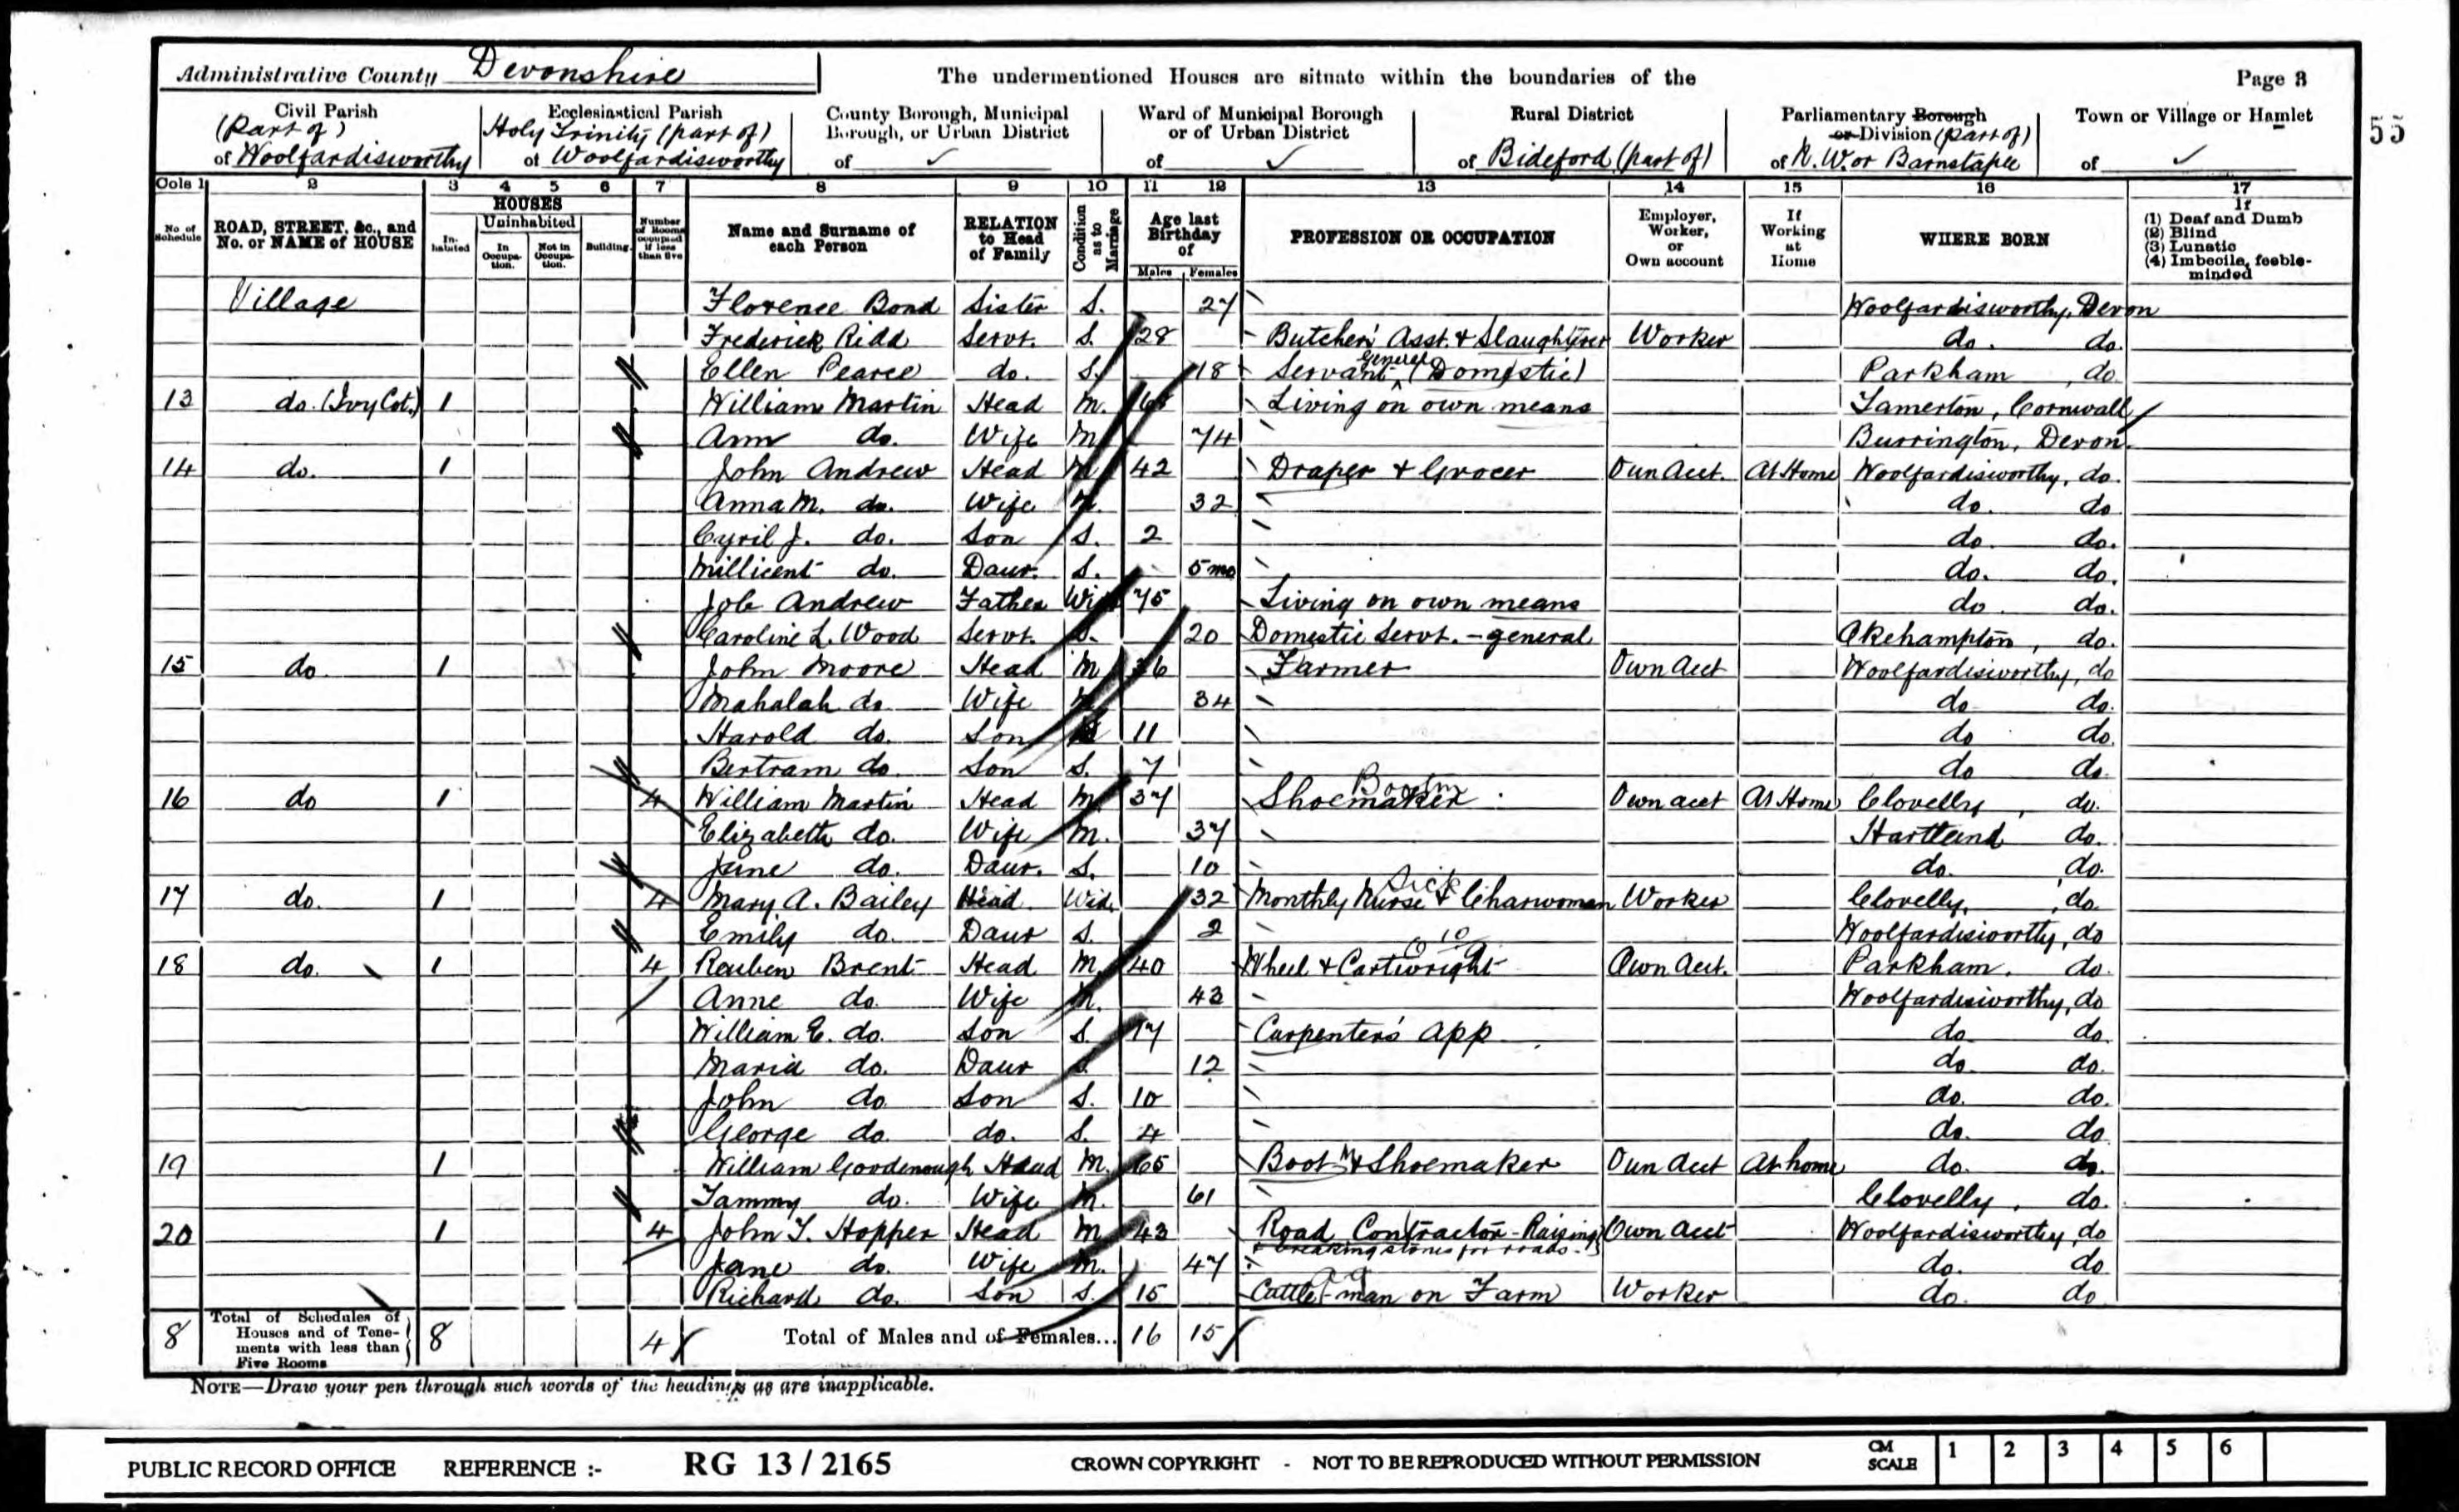 Administrative County Devonshire The undermentioned Houses are situate within the boundaries of the Page 3
55
Civil Parish Ecclesiastical Parish County Borough, Municipal Borough, or Urban District Ward of Municipal Borough or of Urban District Rural District Parliamentary Borough or Division (part of) Town or Village or Hamlet
(Part of) of Woolfardisworthy Holy Trinity (part of) of Woolfardisworthy of ✓ of ✓ of Bideford (part of) of N. W. or Barnstaple of ✓
Cols 1 2 3 4 5 6 7 8 9 10 11 12 13 14 15 16 17
No of Schedule ROAD, STREET, &c., and No. or NAME of HOUSE HOUSES Inhabited Uninhabited In Occupation. Not in Occupation. Building. Number of Rooms occupied if less than five Name and Surname of each Person RELATION to Head of Family Condition as to Marriage Age last Birthday of Males Females PROFESSION OR OCCUPATION Employer, Worker, or Own account If Working at Home WHERE BORN If (1) Deaf and Dumb (2) Blind (3) Lunatic (4) Imbecile, feeble-minded
Village Florence Bond Sister S. 27 Woolfardisworthy, Devon
Frederick Ridd Servt. S. 28 Butcher's Asst. & Slaughterer Worker do. do.
Ellen Pearce do. S. 18 Servant general (Domestic) Parkham, do.
13 do. (Ivy Cot.) 1 William Martin Head M. Living on own means Tamerton, Cornwall
Ann do. Wife M 74 Burrington, Devon.
14 do. 1 John Andrew Head M 42 Draper & Grocer Own Acct. At Home Woolfardisworthy, do.
Anna M. do. Wife M 32 do. do
Cyril J. do. Son S. 2 do. do.
Millicent do. Daur. S. 5 mo do. do.
Job Andrew Father Wid 75 Living on own means do. do.
Caroline L. Wood Servt. S. 20 Domestic Servt. - general Okehampton, do.
15 do. 1 John Moore Head M 36 Farmer Own Acct Woolfardisworthy, do
Mahalah do Wife M 34 do do.
Harold do. Son S 11 do do.
Bertram do. Son S. 7 do do.
16 do 1 4 William Martin Head M. 37 Shoemaker Bootm Own acct At Home Clovelly, do.
Elizabeth do. Wife M. 37 Hartland do.
June do. Daur. S. 10 do. do.
17 do. 1 4 Mary A. Bailey Head. Wid. 32 Monthly Nurse Sick & Charwoman Worker Clovelly, do.
Emily do. Daur S. 2 Woolfardisworthy, do
18 do. 1 4 Reuben Brent Head M. 40 Wheel & Cartwright Own Acct. Parkham. do.
Anne do. Wife M. 43 Woolfardisworthy, do
William E. do. Son S. 17 Carpenter's App do. do.
Maria do. Daur S. 12 do. do.
John do. Son S. 10 do. do.
George do. do. S. 4 do. do.
19 1 William Goodenough Head M. 65 Boot M & Shoemaker Own Acct At home do. do.
Tammy do. Wife M. 61 Clovelly, do.
20 1 4 John T. Hopper Head M 43 Road Contractor - Raising & breaking stones for roads. Own Acct Woolfardisworthy, do
Jane do. Wife M. 47 do. do
Richard do. Son S. 15 Cattle-man on Farm Worker do. do
8 Total of Schedules of Houses and of Tenements with less than Five Rooms 8 4 Total of Males and of Females... 16 15
NOTE—Draw your pen through such words of the headings as are inapplicable.
PUBLIC RECORD OFFICE REFERENCE :- RG 13 / 2165 CROWN COPYRIGHT - NOT TO BE REPRODUCED WITHOUT PERMISSION CM SCALE 1 2 3 4 5 6